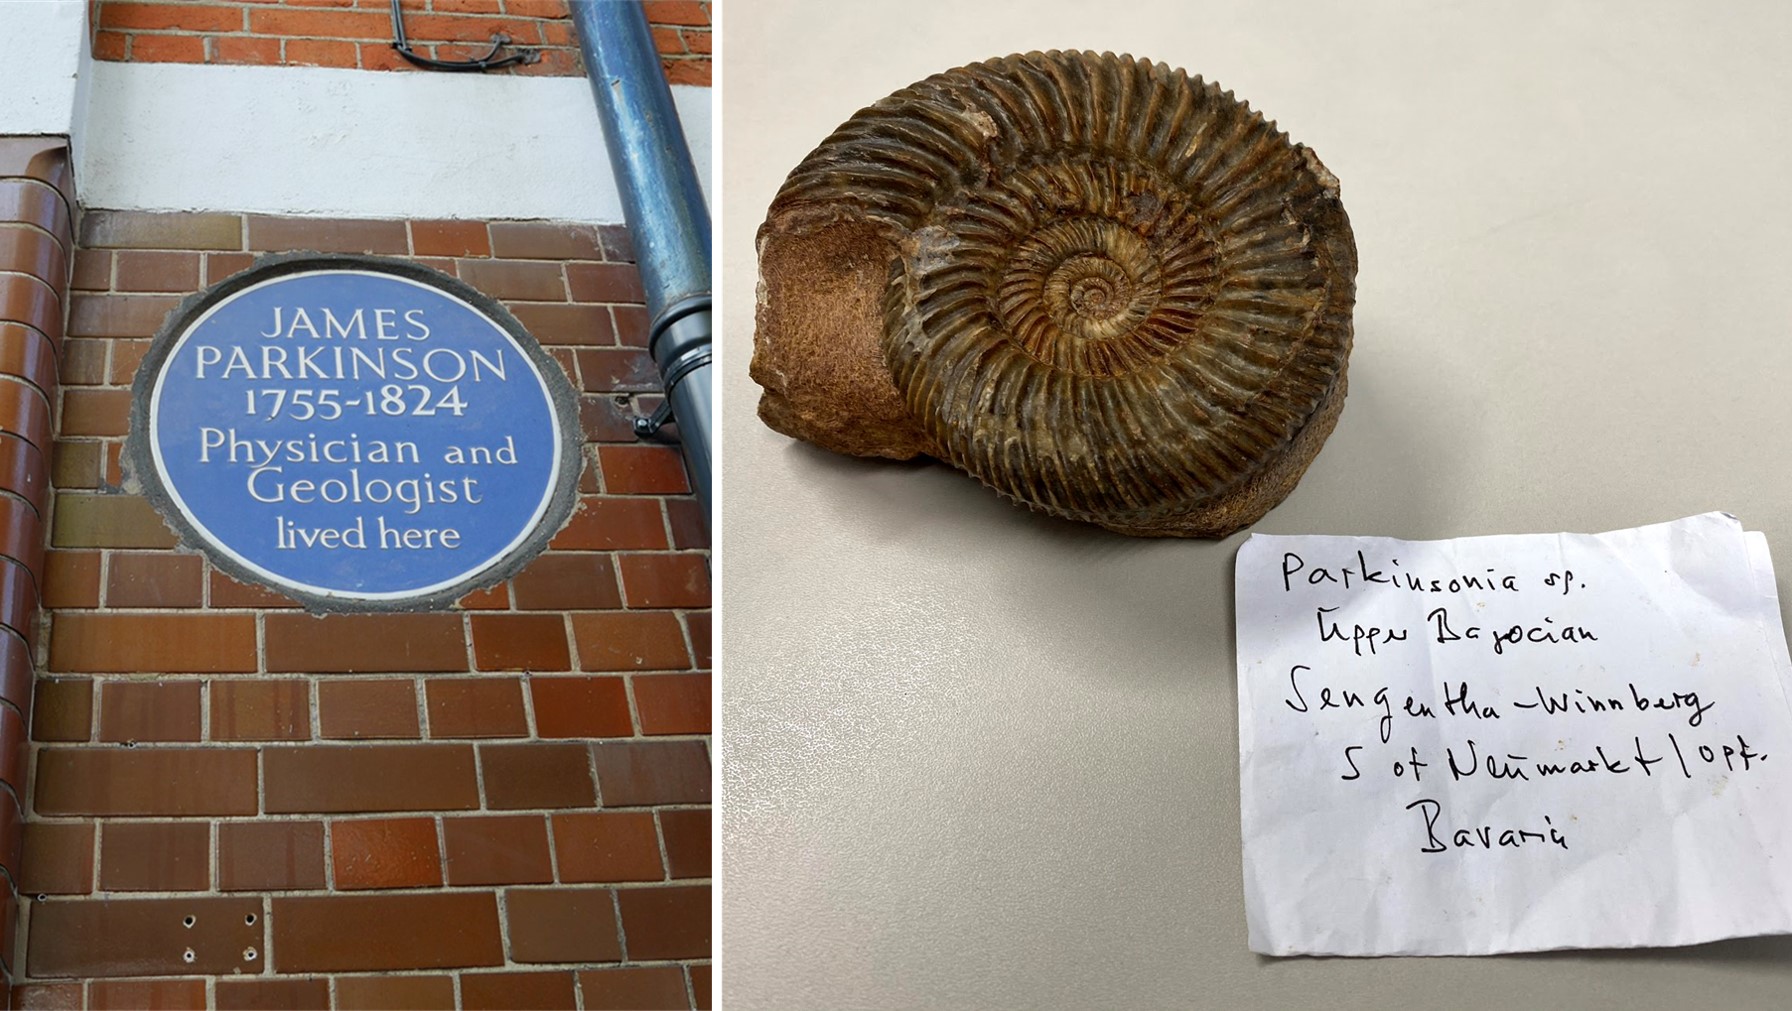 JAMES
PARKINSON
1755-1824
Physician and
Geologist
lived here
Parkinsonia sp.
Upper Bajocian
Sengentha-Winnberg
S of Neumarkt/Opf.
Bavaria